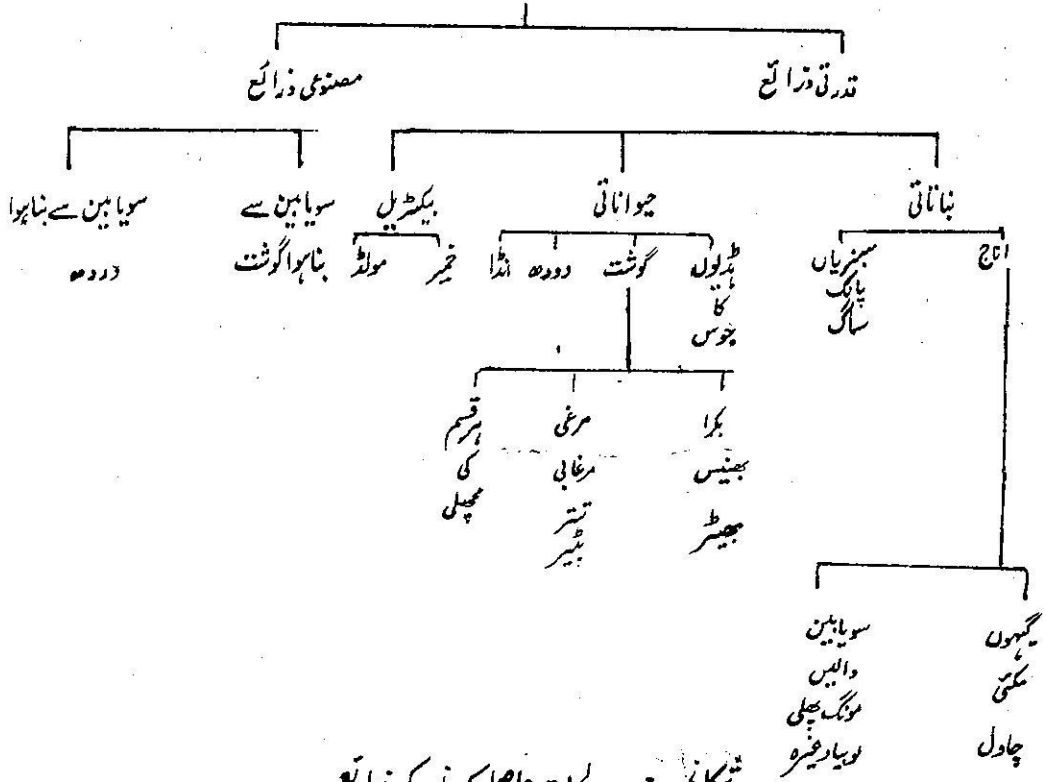 قدرتی ذرائع
مصنوعی ذرائع
نباتاتی
حیواناتی
بیکٹریل
سویابین سے
بناہوا گوشت
سویابین سے بناہوا
دودھ
اناج
سبزیاں
پالک
ساگ
ہڈیوں
کا
جوس
گوشت
دودھ
انڈا
خمیر
مولڈ
بکرا
بھینس
بھیڑ
مرغی
مرغابی
تیتر
بٹیر
ہرقسم
کی
مچھلی
گیہوں
مکئی
چاول
سویابین
دالیں
مونگ پھلی
لوبیا وغیرہ